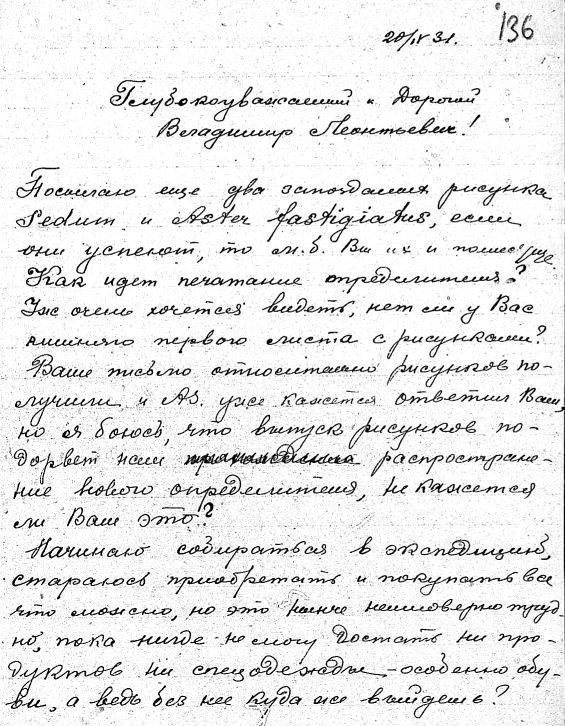 136
20/IV 31.
Глубокоуважаемый и Дорогой
Владимир Леонтьевич!
Посылаю еще два запоздалых рисунка
Sedum и Aster fastigiatus, если
они успеют, то м.б. Вы их и поместите.
Как идет печатание определителя?
Уж очень хочется видеть, нет ли у Вас
лишняго первого листа с рисунками?
Ваше письмо относительно рисунков по-
лучили и АЗ. уже кажется ответил Вам,
но я боюсь, что выпуск рисунков по-
дорвет нам распростране-
ние нового определителя, не кажется
ли Вам это!?
Начинаю собираться в экспедицию,
стараюсь приобретать и покупать все
что можно, но это нынче неимоверно труд-
но, пока нигде не могу достать ни про-
дуктов ни спецодежды, - особенно обу-
ви, а ведь без нее куда же выйдешь?